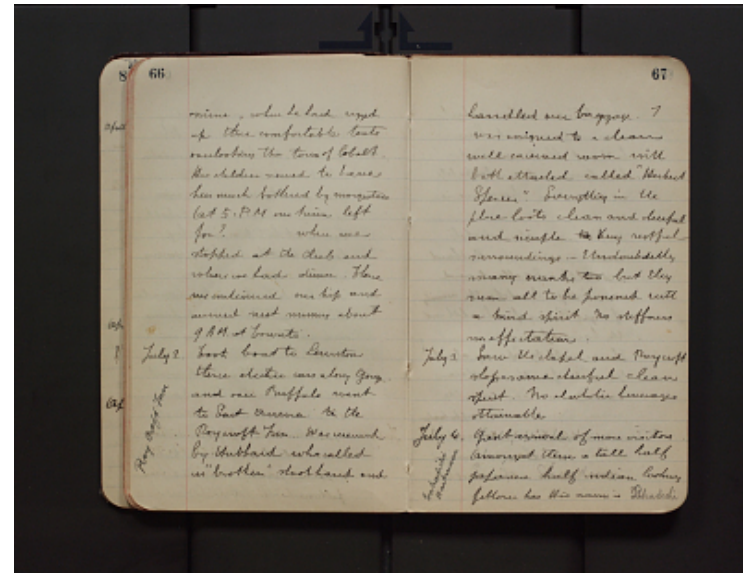 66
mine, where he had rigged
up three comfortable tents
overlooking the town of Cobalt.
His children seemed to have
been much bothered by mosquitoes
(at 5. P.M our train left
for? when we
stopped at the club and
where we had dinner. Here
we continued our trip and
arrived next morning about
9 A.M. at Toronto.
July 2. Took boat to Lewiston
thence electric cars along Gorge
and over Buffalo went
to East Aurora to the
Roycroft Inn. Was received
by Hubbard who called
us "brother" shook hand and
Roy Croft Inn
67
handled our baggage. I
was assigned to a clean
well caissoned room with
bath attached called "Herbert
Spencer". Everything in the
place looks clean and cheerful
and simple Very restful
surroundings - Undoubtedly
many cranks but they
seem all to be possessed with
a kind spirit no stiffness
no affectation.
July 3. Saw the chapel and Roycroft
shops same cheerful clean
spirit. No alcoholic beverages
obtainable
July 4. Great arrival of more visitors
amongst them a tall half
japanese half indian looking
fellow has the name -